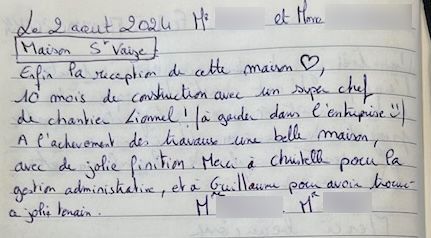 Le 2 aout 2024 Mr et Mme
Maison St Vaize
Enfin la reception de cette maison ♡,
10 mois de construction avec un super chef
de chantier Lionnel ! (à garder dans l'entreprise ☺)
A l'achevement des travaux une belle maison,
avec de jolie finition. Merci à christelle pour la
gestion administrative, et à Guillaume pour avoir trouvé
a jolie terrain. Mr Mme